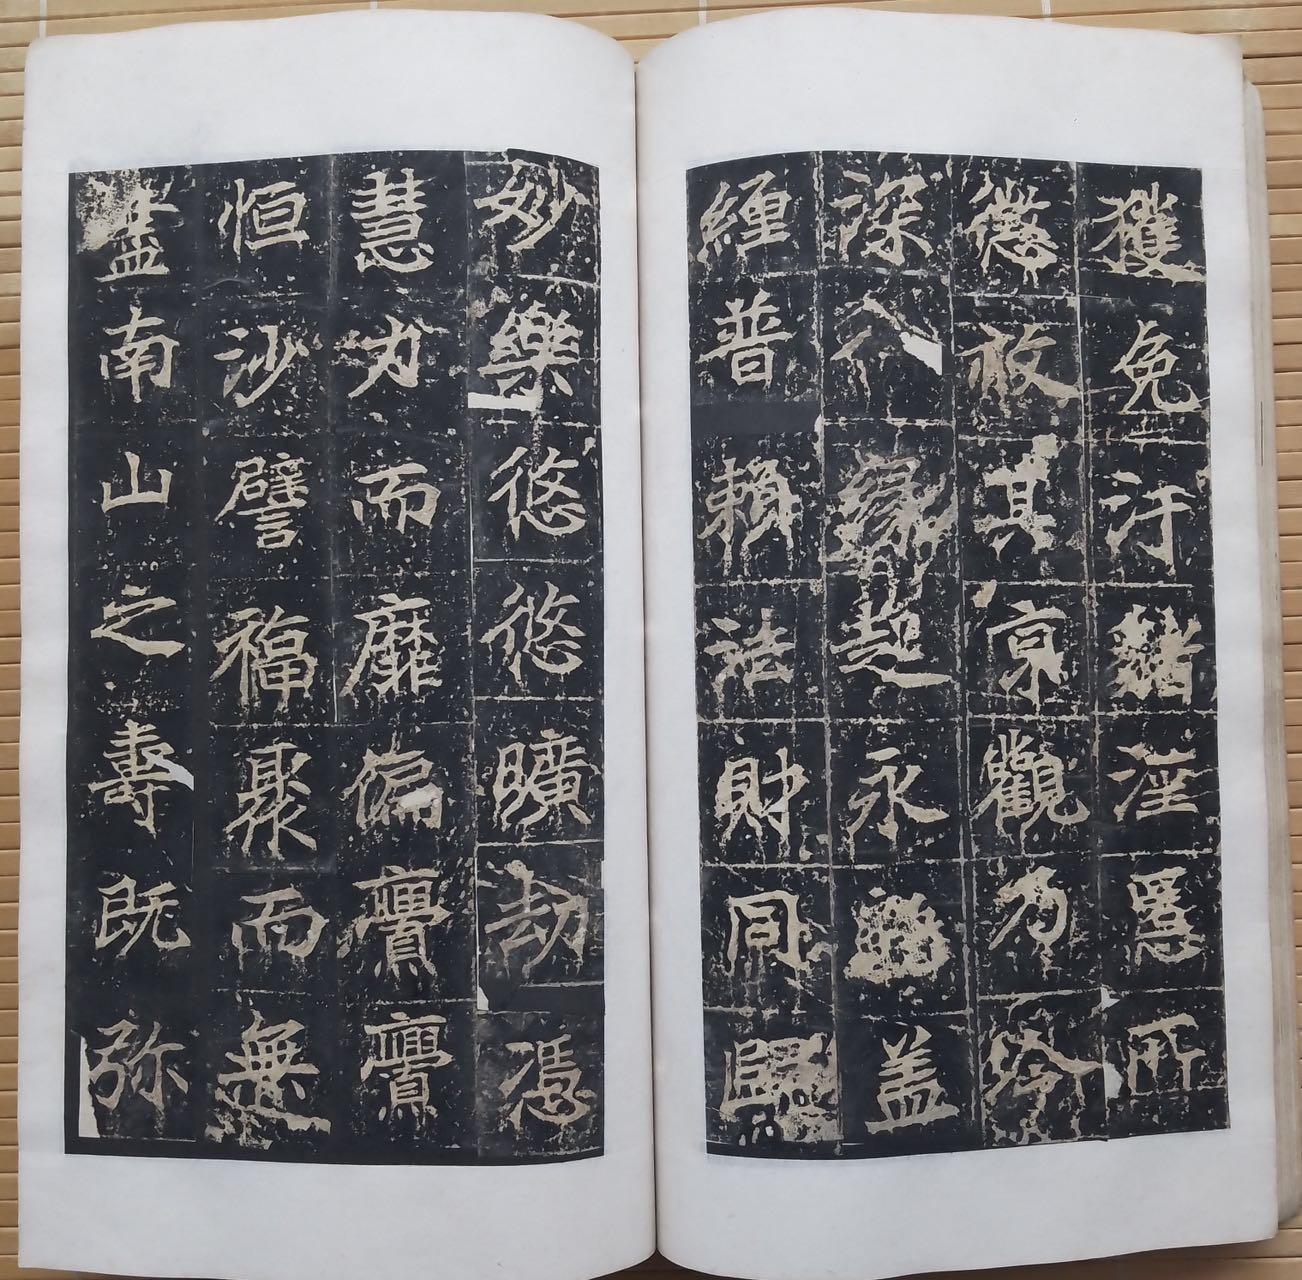 獲免汙豬淫慝所
懲故其京觀乃
深入緣起永離蓋
纏普賴法財同歸
妙樂悠悠曠劫憑
慧力而靡偏亹亹
恒沙譬福聚而無
盡南山之壽既弥